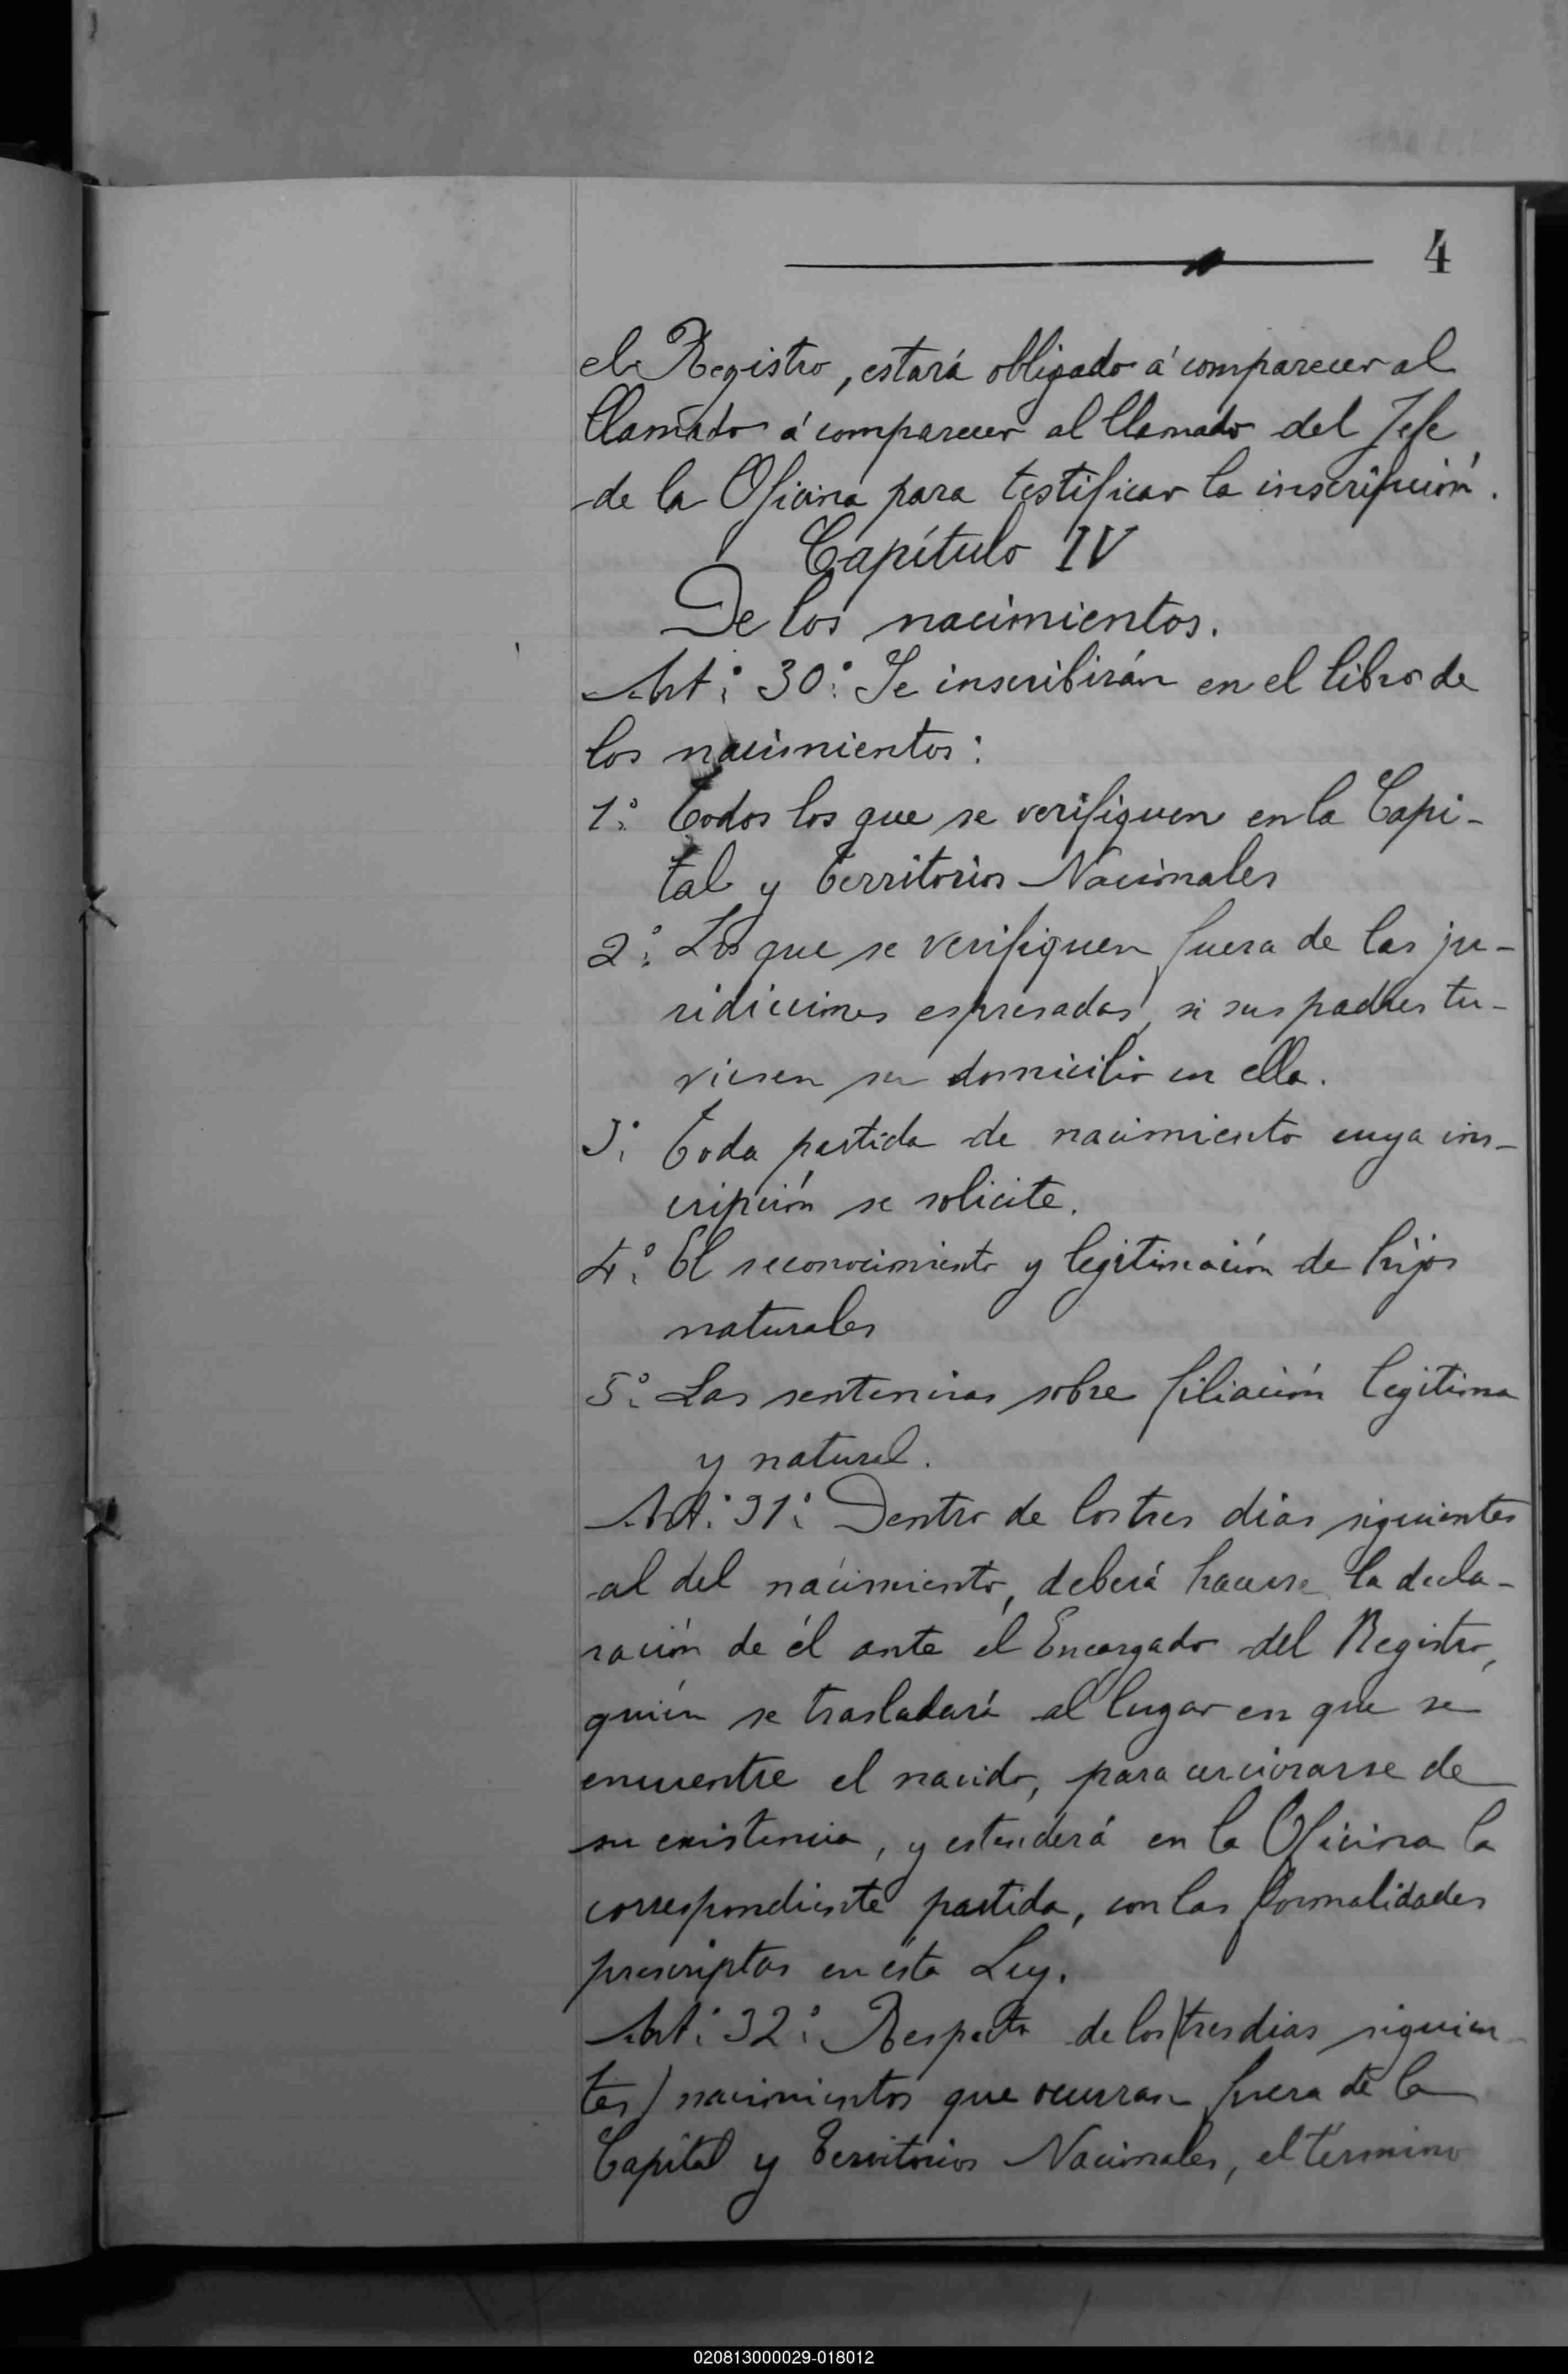 4
el Registro, estará obligado á comparecer al
llamado á comparecer al llamado del Jefe
de la Oficina para testificar la inscripción.
Capítulo IV
De los nacimientos.
Art.º 30.º Se inscribirán en el libro de
los nacimientos:
1.º Todos los que se verifiquen en la Capi-
tal y Territorios Nacionales
2.º Los que se verifiquen fuera de las ju-
ridicciones espresadas, si sus padres tu-
viesen su domicilio en ella.
3.º Toda partida de nacimiento cuya ins-
cripción se solicite.
4.º El reconocimiento y legitimación de hijos
naturales
5.º Las sentencias sobre filiación legitima
y natural.
Art.º 31.º Dentro de los tres dias siguientes
al del nacimiento, deberá hacerse la decla-
ración de él ante el Encargado del Registro,
quien se trasladará al lugar en que se
encuentre el nacido, para cerciorarse de
su existencia, y estenderá en la Oficina la
correspondiente partida, con las formalidades
prescriptas en esta Ley.
Art.º 32.º Respecto de los (tres dias siguien-
tes) nacimientos que ocurran fuera de la
Capital y Territorios Nacionales, el término
020813000029-018012